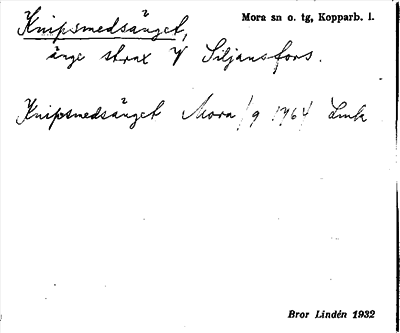 Knipsmedsänget, Mora sn o. tg, Kopparb. l.
änge strax V Siljansfors.
Knipsmedsänget Mora/9 1764 Lmk
Bror Lindén 1932